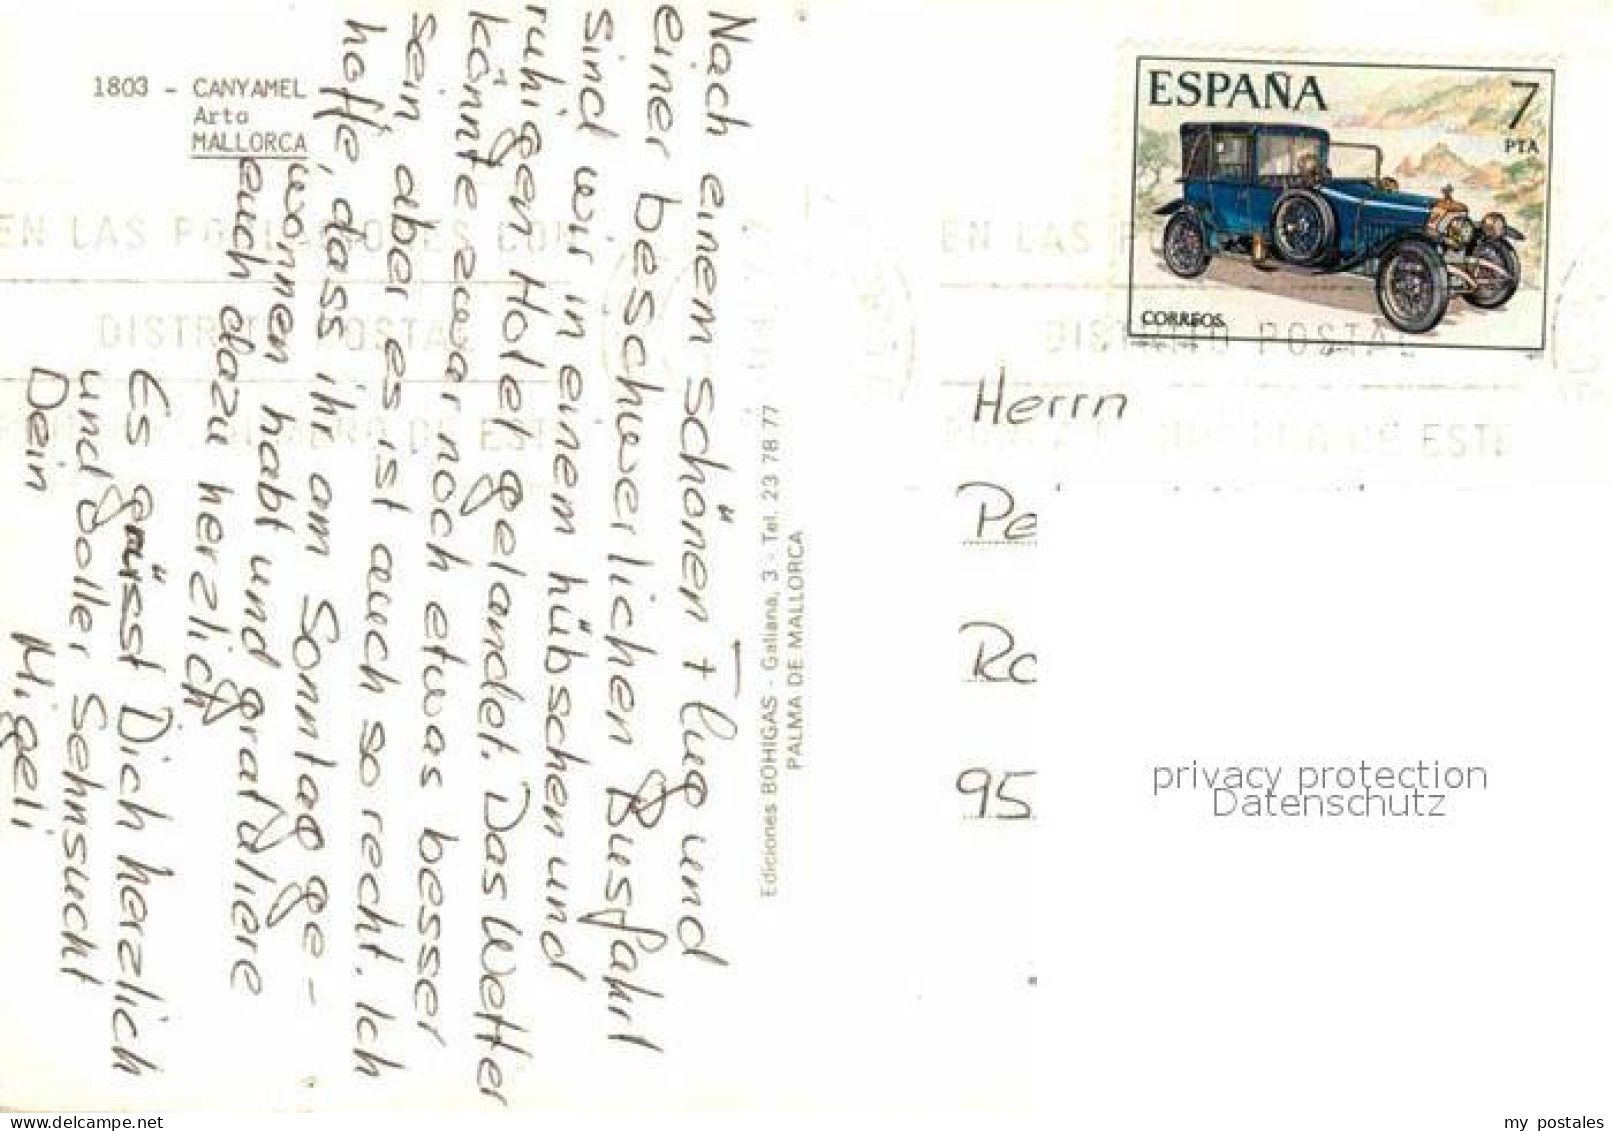 1803 - CANYAMEL
Arta
MALLORCA
Nach einem schönen Flug und
einer beschwerlichen Busfahrt
sind wir in einem hübschen und
ruhigen Hotel gelandet. Das Wetter
könnte zwar noch etwas besser
sein, aber es ist auch so recht. Ich
hoffe, dass ihr am Sonntag ge-
wonnen habt und gratuliere
euch dazu herzlich
Es grüsst Dich herzlich
und voller Sehnsucht
Dein Migeli
Ediciones BOHIGAS - Galiana, 3 - Tel. 23 78 77
PALMA DE MALLORCA
ESPAÑA 7
PTA
CORREOS
EN LAS
DISTRITO POSTAL
ESTE
Herrn
Pe
Ro
95
privacy protection
Datenschutz
my postales